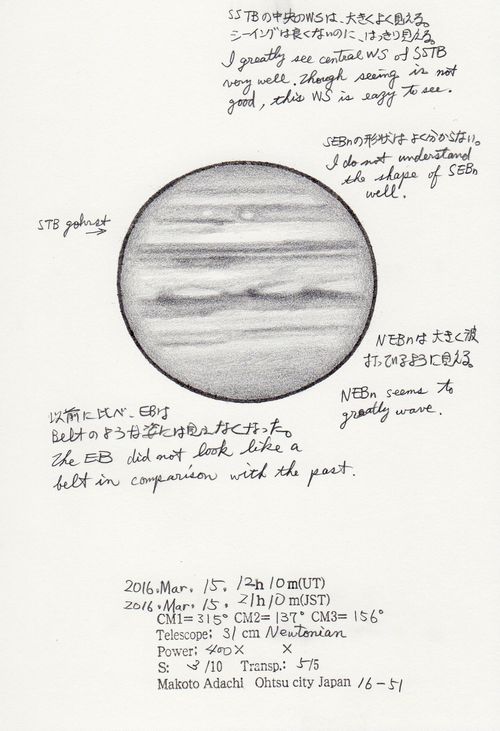 SSTBの中央のWSは、大きくよく見える。
シーイングは良くないのに、はっきり見える。
I greatly see central WS of SSTB
very well. Though seeing is not
good, this WS is eazy to see.
SEBnの形状はよく分からない。
I do not understand
the shape of SEBn
well.
STB gohrst
NEBnは大きく波
打っているように見える。
NEBn seems to
greatly wave.
以前に比べ、EBは
Beltのような姿には見えなくなった。
The EB did not look like a
belt in comparison with the past.
2016. Mar. 15. 12h 10m(UT)
2016. Mar. 15. 21h 10m(JST)
CM1=315° CM2=137° CM3=156°
Telescope; 31cm Newtonian
Power; 400× ×
S: 3/10 Transp.; 5/5
Makoto Adachi Ohtsu city Japan 16-51